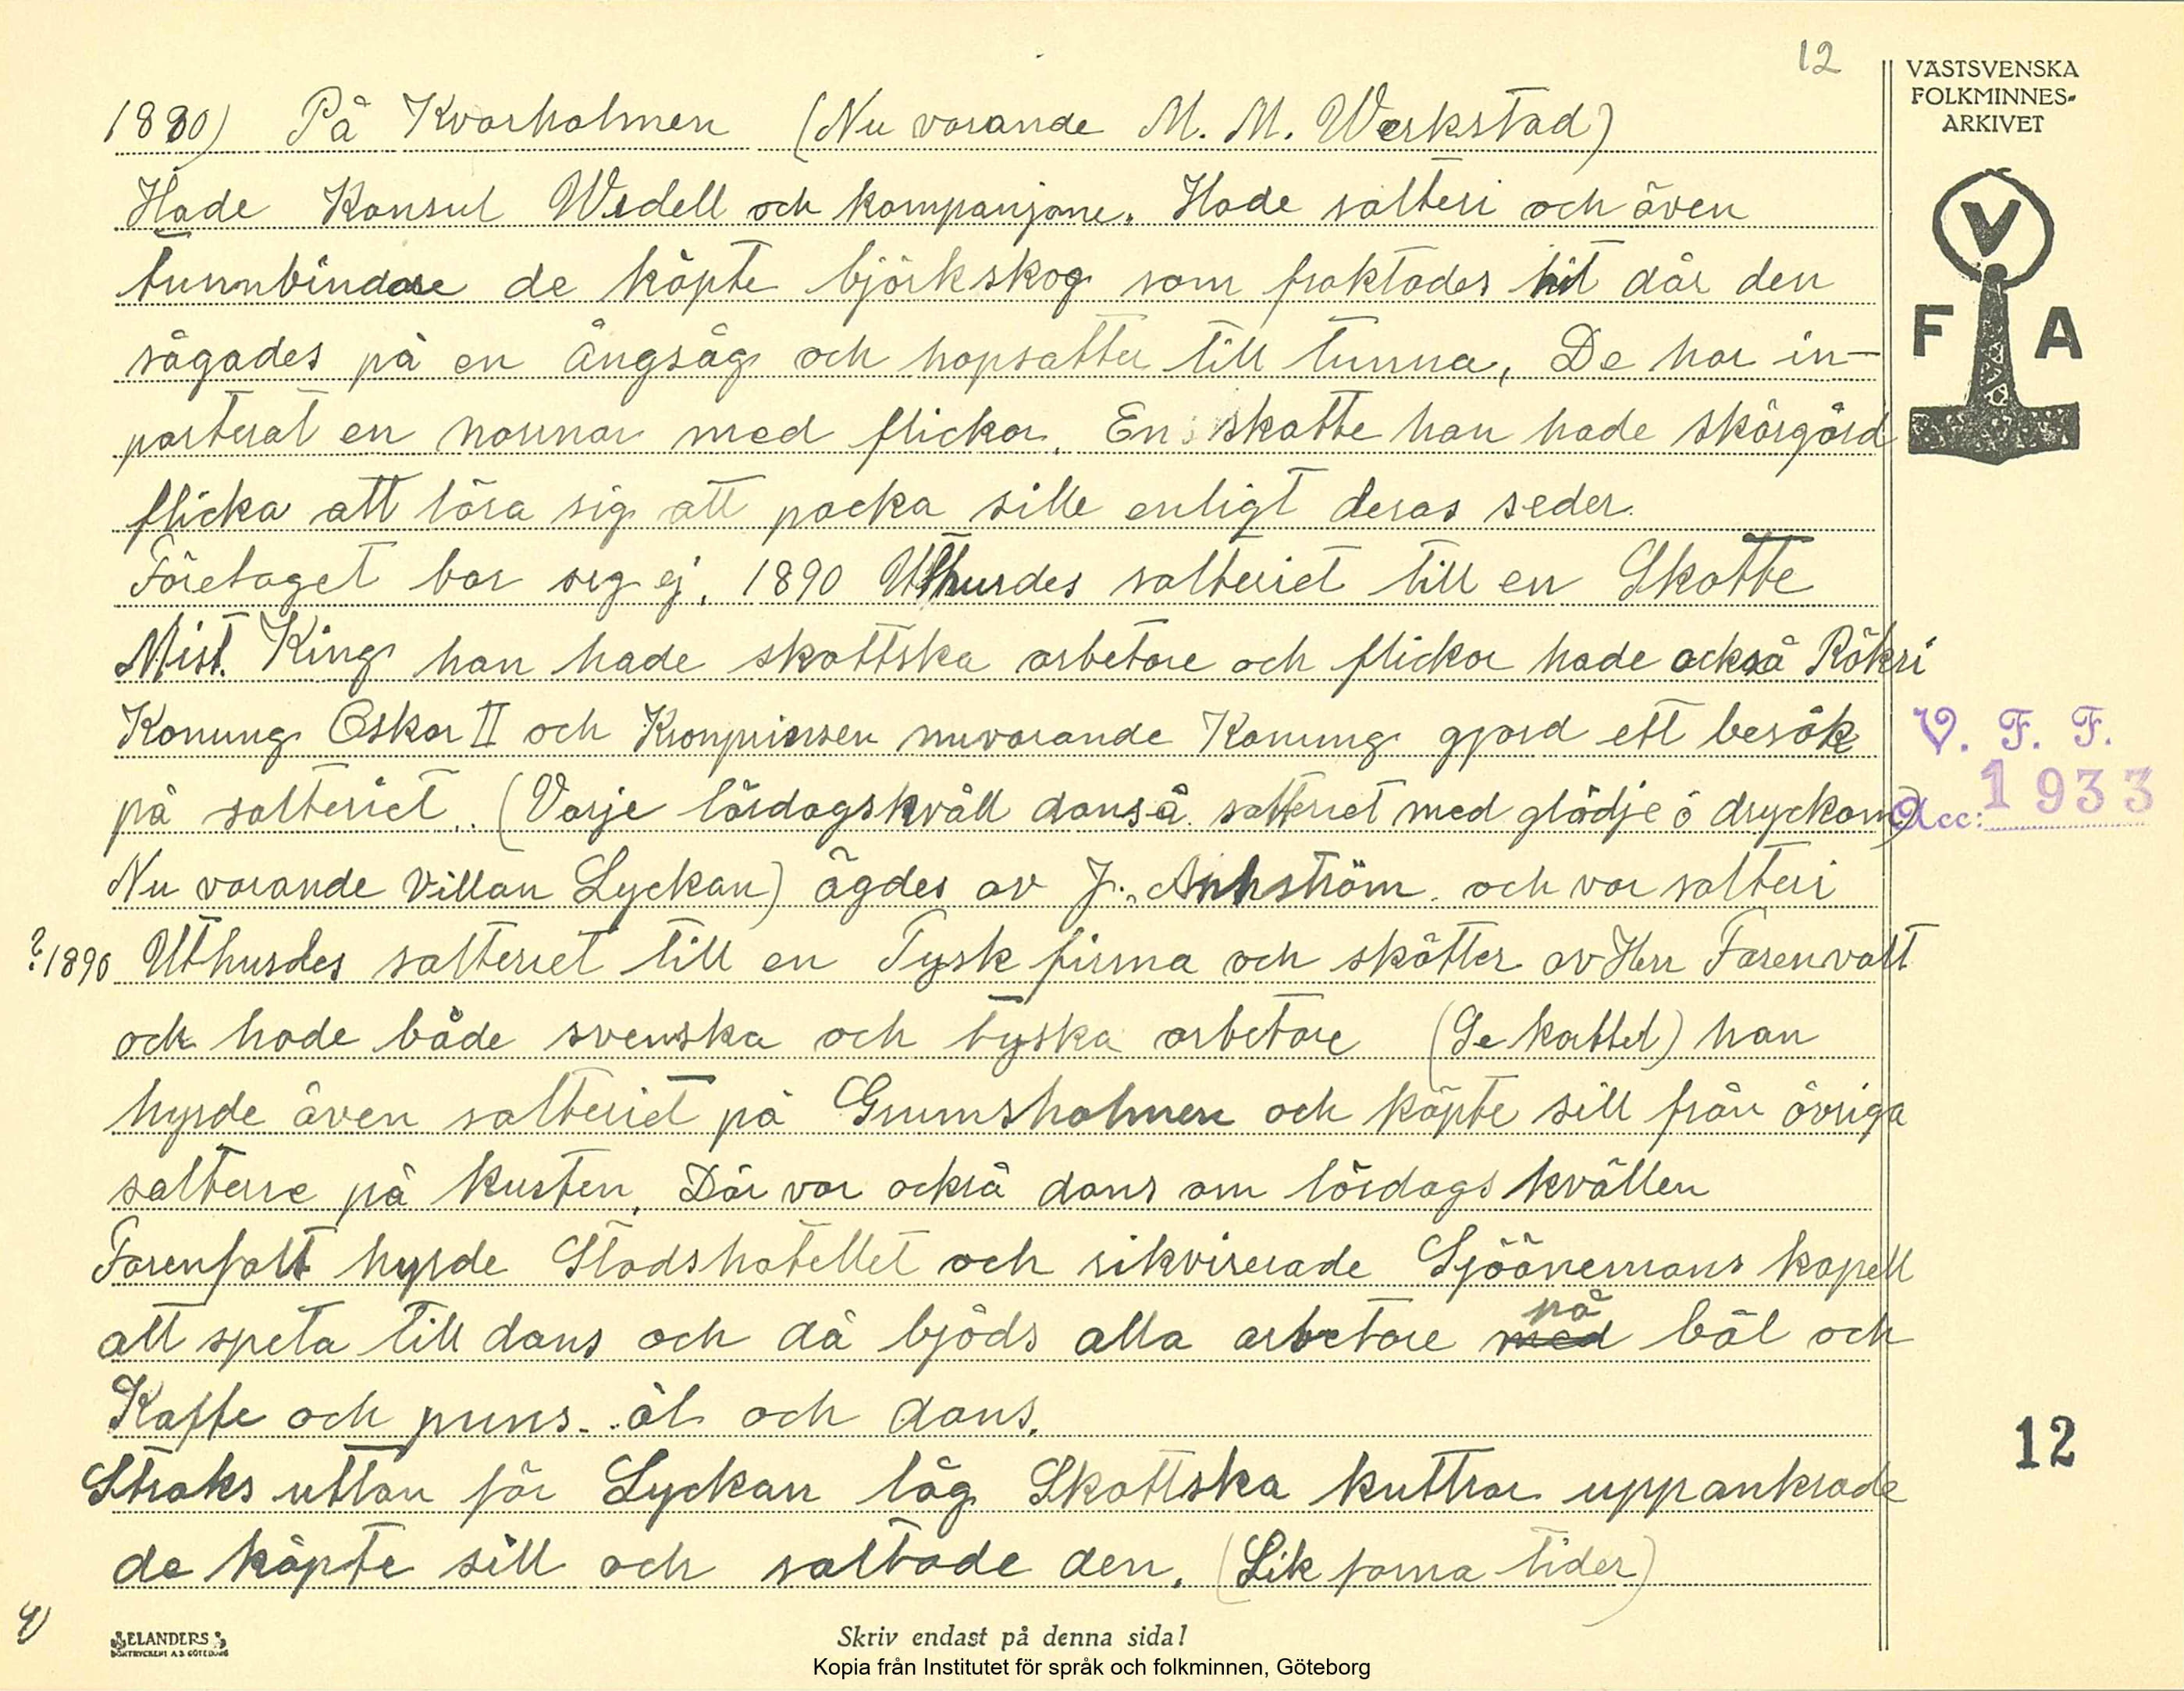 12
VÄSTSVENSKA
FOLKMINNES-
ARKIVET
V
F A
1880) På Kvarholmen (Nu varande M. M. Werkstad)
Hade Konsul Wedell och kompanjone. Hade salteri och även
tunnbindare de köpte björkskog som fraktades hit där den
sågades på en ångsåg och hopsatter till tunna, De har in-
porterat en norrnar med flickor. En skotte han hade skärgård
flicka att lära sig att packa sille enligt deras seder.
Företaget bar sig ej. 1890 Uthurdes salteriet till en Skotte
Mist. King han hade skottska arbetare och flickor hade också Rökri
Konung Oskar II och Kronprinsen nuvarande Konung gjord ett besök
på salteriet.. (Varje lördagskväll dans å salteriet med glädje ö dryckom)
Nu varande villan Lyckan) ägdes av J. Ankström. och var salteri
?1890 Uthurdes salteriet till en Tysk firma och skötter av Herr Farenvalt
och hade både svenska och tyska arbetare (Se kortet) han
hyrde även salteriet på Grumsholmen och köpte sill från övriga
salterie på kusten. Där var också dans om lördags kvällen
Farenfalt hyrde Stadshotellet och rikvirerade Sjöönemans kapell
på
att spela till dans och då bjöds alla arbetare med bål och
Kaffe och puns. öl och dans.
Straks uttan för Lyckan låg Skottska kuttrar uppankrade
de köpte sill och saltade den. (Lik forna tider)
V. F. F.
Acc: 1933
12
ELANDERS
BOKTRYCKERI A.B. GÖTEBORG
Skriv endast på denna sida!
Kopia från Institutet för språk och folkminnen, Göteborg